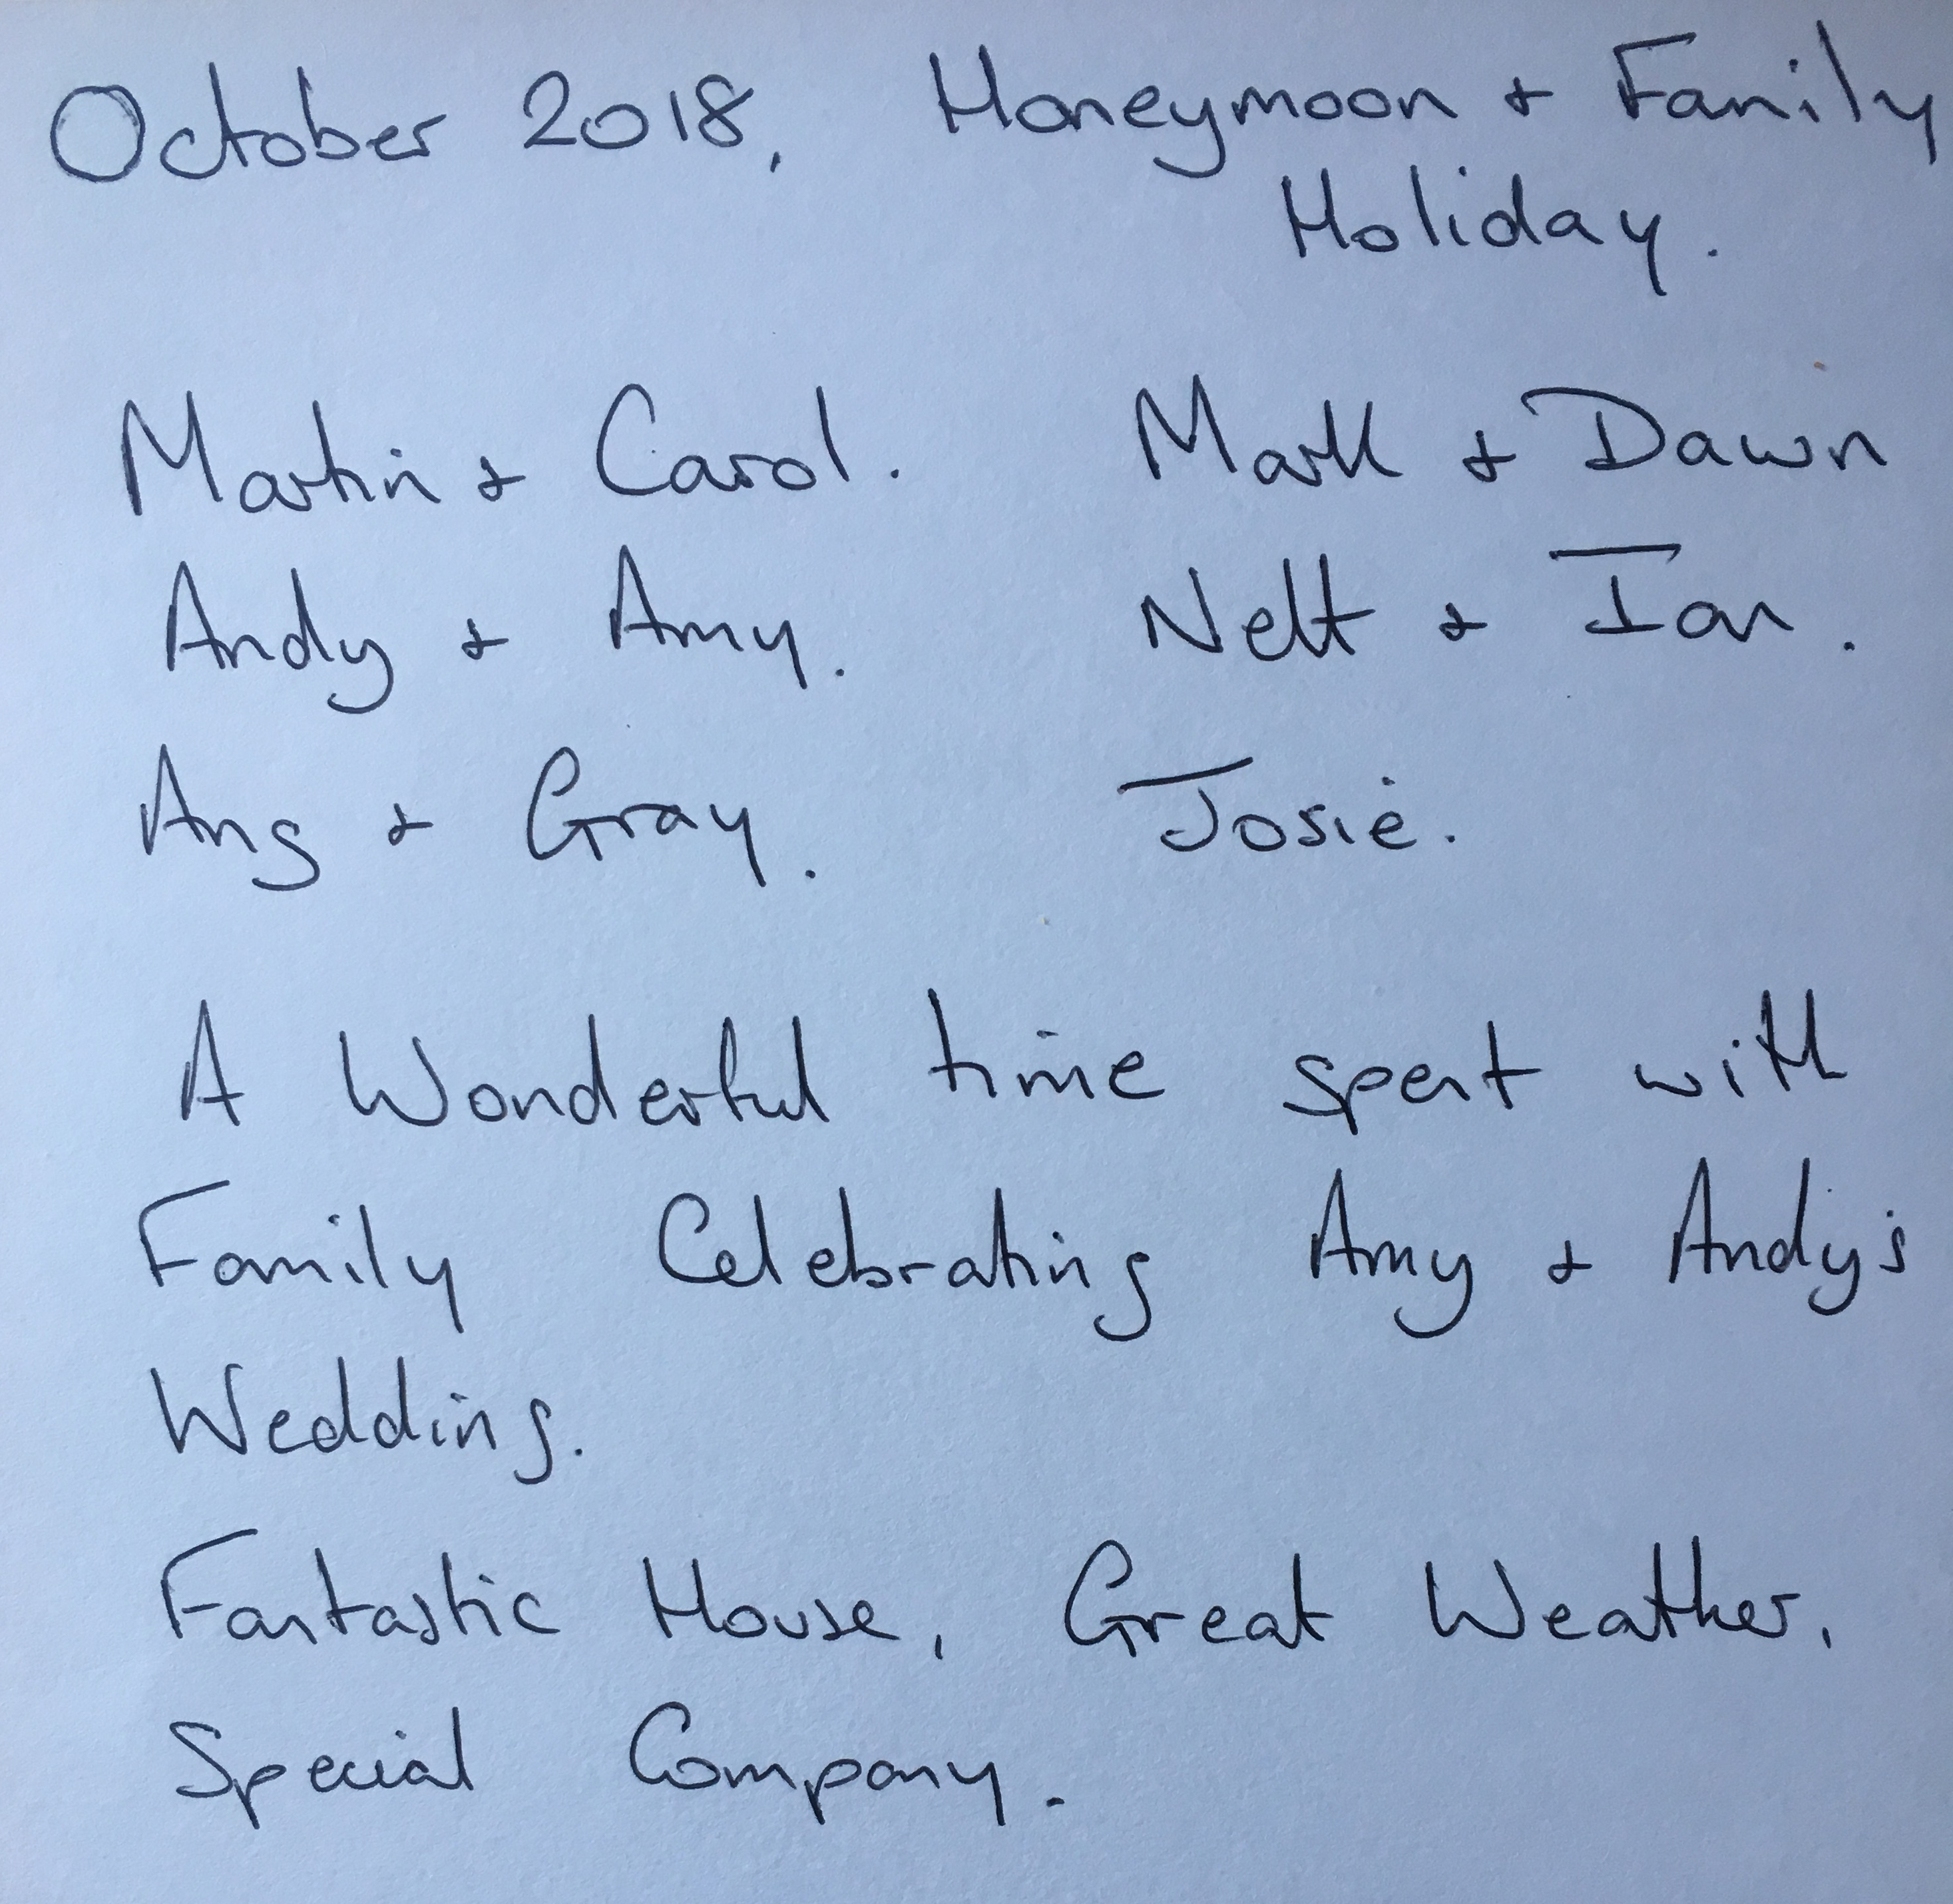 October 2018, Honeymoon + Family
Holiday.
Martin + Carol. Mark + Dawn
Andy + Amy. + Ian.
Ang + Gray. Josie.
A Wonderful time spent with
Family Celebrating Amy + Andy's
Wedding.
Fantastic House, Great Weather,
Special Company.